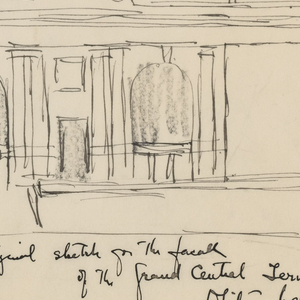 ginal sketch for the facade
of the Grand Central Ter